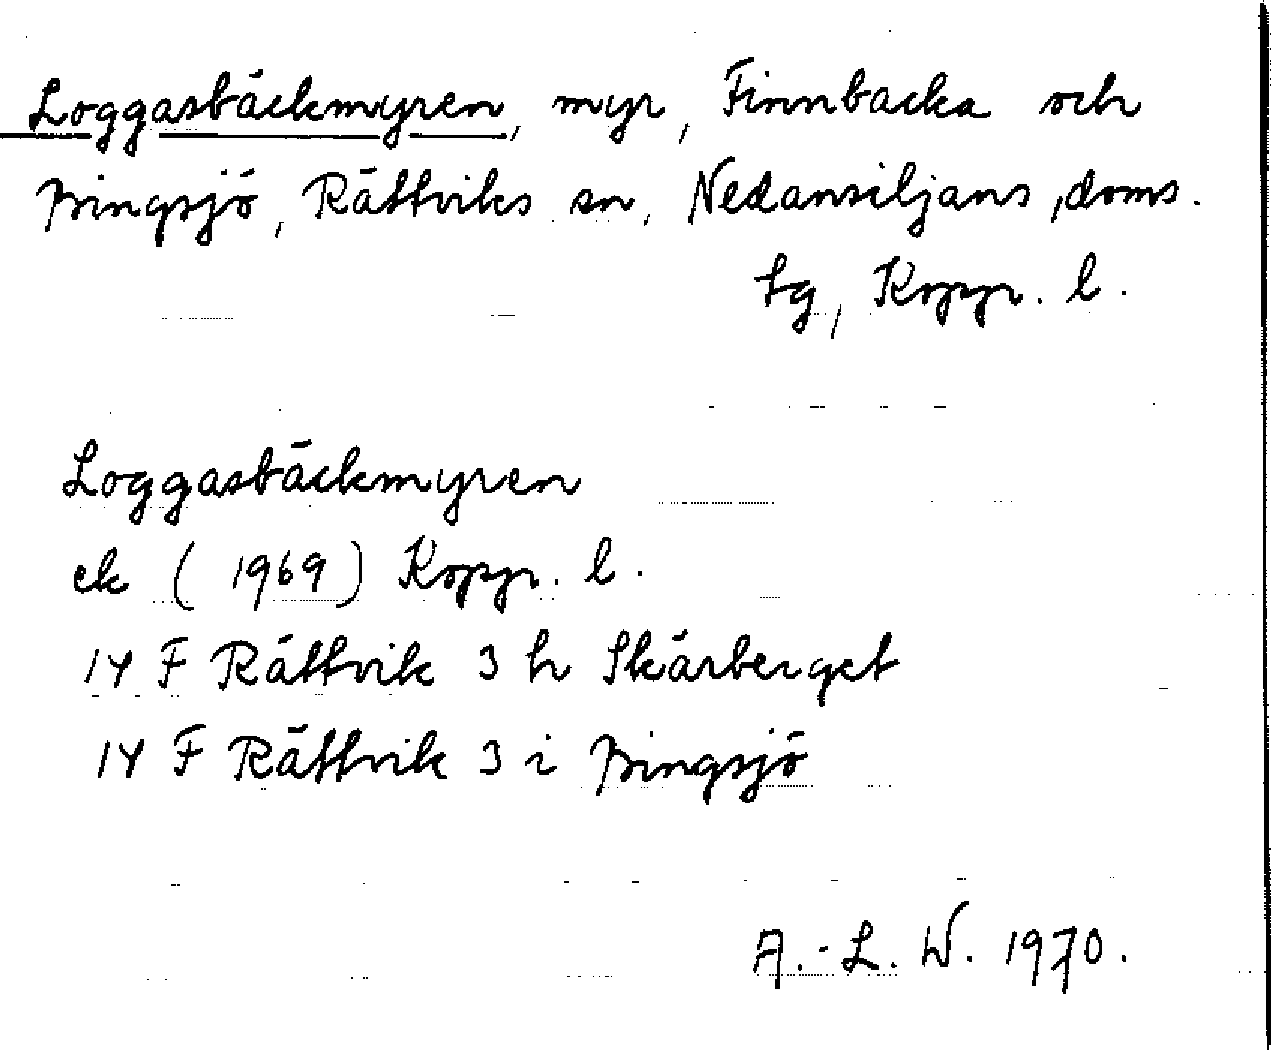 Loggasbäckmyren, myr, Finnbacka och
Bingsjö, Rättviks sn, Nedansiljans, doms.
tg, Kopp. l.
Loggasbäckmyren
ek (1969) Kopp. l.
14 F Rättvik 3 h Skärberget
14 F Rättvik 3 i Bingsjö
A.-L. W. 1970.